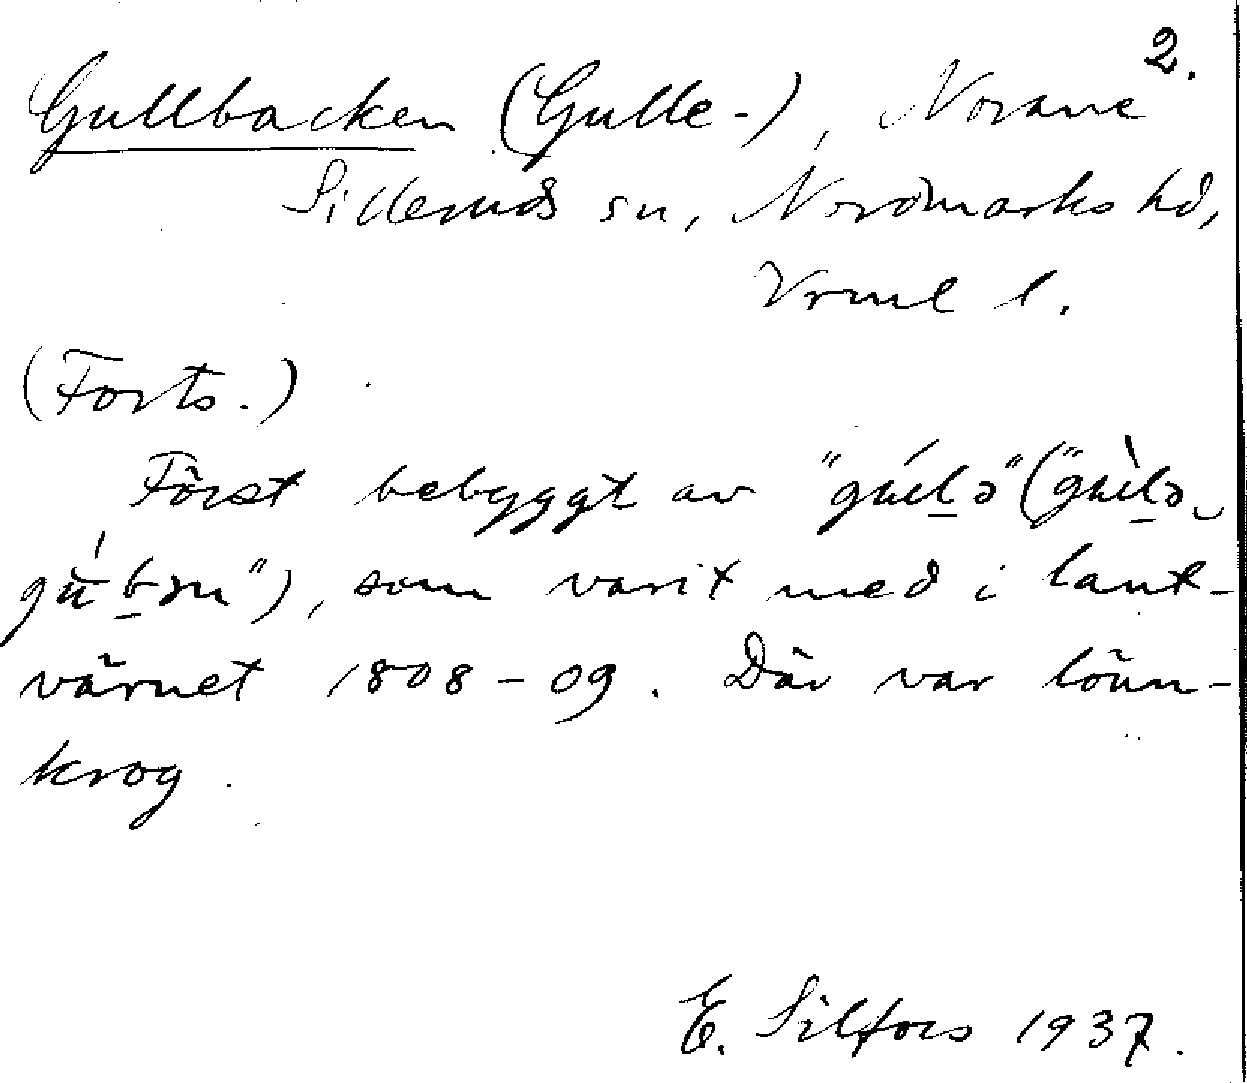 2.
Gullbacken (Gulle-), Norane
Silleruds sn, Nordmarks hd,
Vrml l.
(Forts.)
Först bebyggt av
som varit med i lant-
värnet 1808-09. Där var lönn-
krog.
E. Silfors 1937.